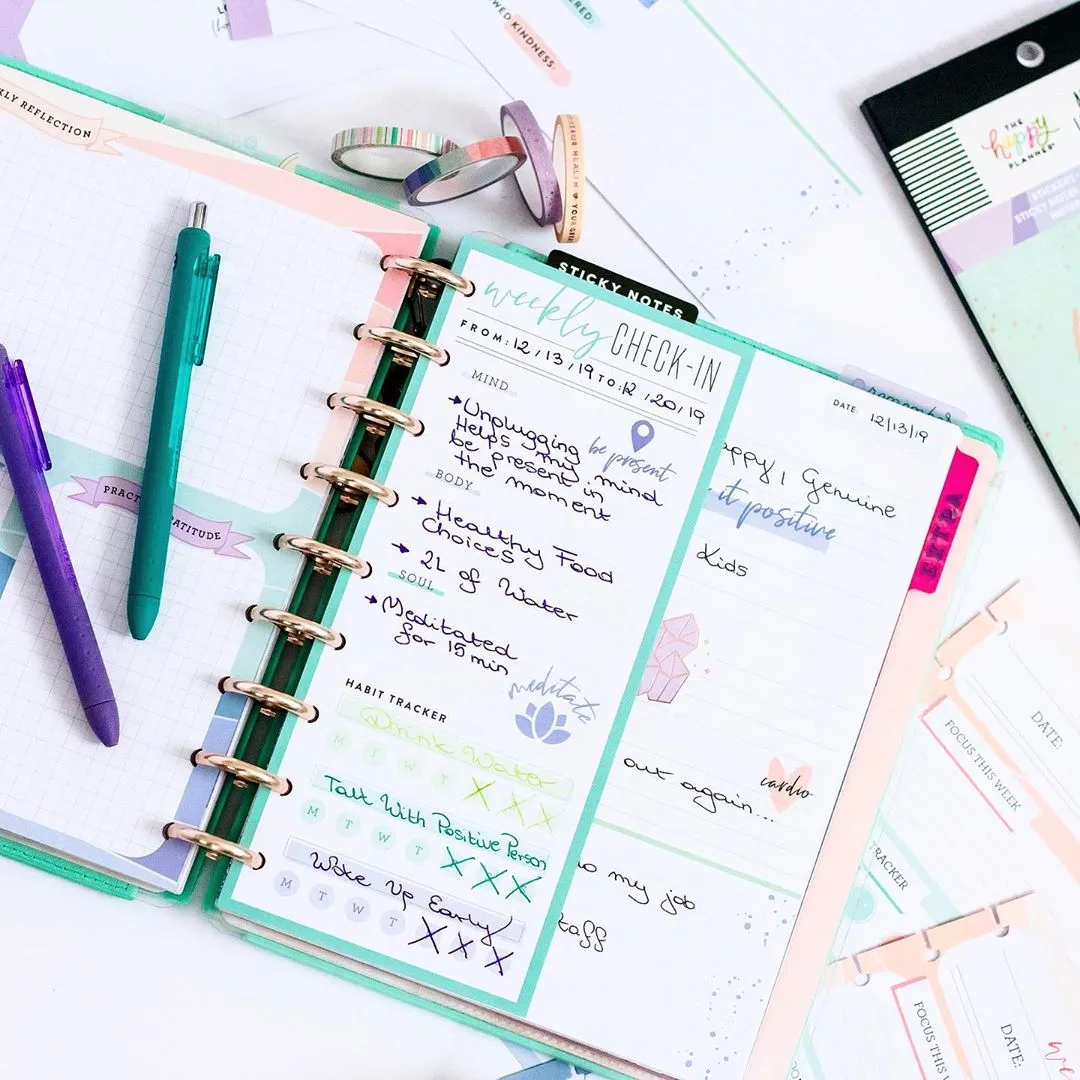 WED KINDNESS
RED
KLY REFLECTION
PRACT
ATITUDE
HEALTH ♥ YOUR
THE
happy
PLANNER
STICKERS
STICKY NOTES
STICKY NOTES
weekly CHECK-IN
FROM: 12 / 13 / 19 TO: 12 / 20 / 19
MIND
→Unplugging
Helps my mind
be present in
the moment
be present
BODY
→ Healthy Food
Choices
→ 2L of Water
SOUL
→Meditated
for 15 min
meditate
HABIT TRACKER
Drink Water
M T W T X X X
Talk With Positive Person
M T W T X X X
Wake Up Early
M T W T X X X
DATE: 12/13/19
appy, Genuine
it positive
Kids
out again...
cardio
o my job
taff
EXTRA
DATE:
FOCUS THIS WEEK
TRACKER
DATE:
FOCUS THIS W
we